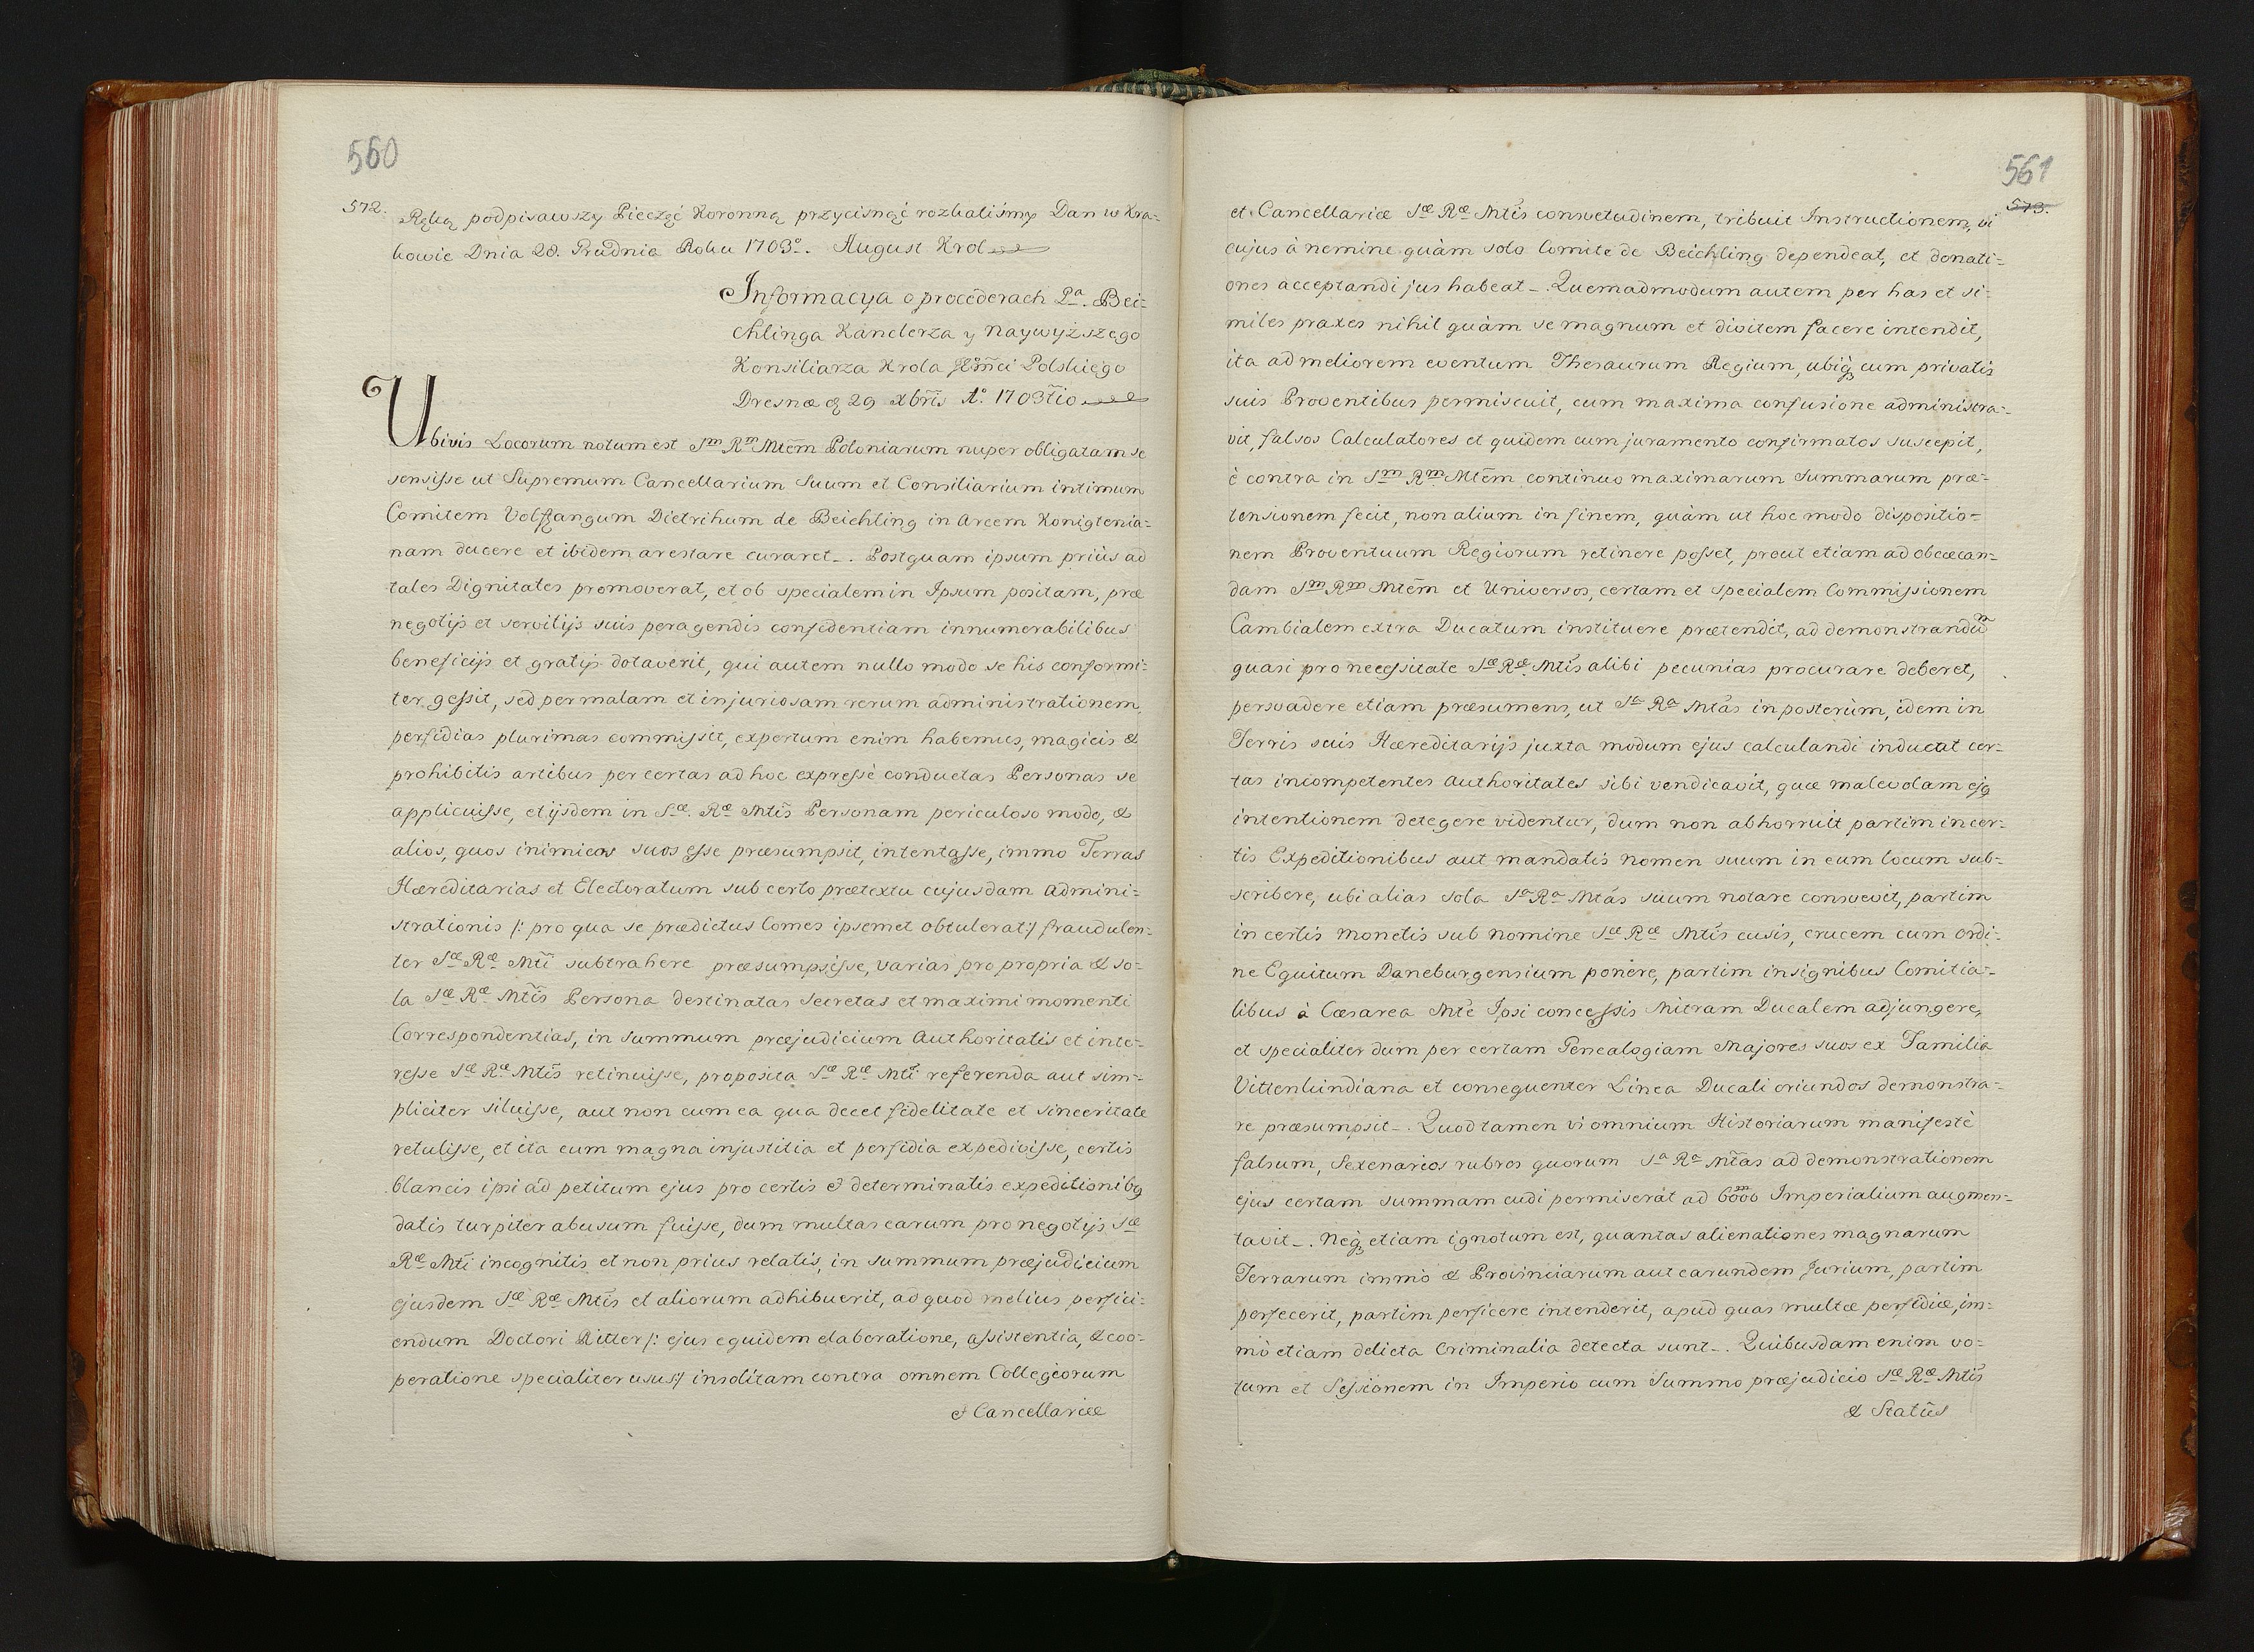 560
572.
Ręką podpisawszy Pieczęć Koronną przycisnąć rozkaliśmy Dan w Kra-
kowie Dnia 28. Grudnia Roku 1703º. August Krol
Informacya o procederach Pa. Bei-
chlinga Kanclerza y Naywyższego
Konsiliarza Krola JEmci Polskiego
Dresnæ 29 Xbris Aº. 1703tio
Ubivis Locorum notum est Sm Rm Mtem Poloniarum nuper obligatam se
sensisse ut Supremum Cancellarium Suum et Consiliarium intimum
Comitem Volfgangum Dietrihum de Beichling in Arcem Konigtenia-
nam ducere et ibidem arestare curaret. Postquam ipsum priùs ad
tales Dignitates promoverat, et ob specialem in Ipsum positam, præ
negotijs et servitijs suis peragendis confidentiam innumerabilibus
beneficijs et gratijs dotaverit, qui autem nullo modo se his conformi-
ter gessit, sed per malam et injuriosam rerum administrationem,
perfidias plurimas commissit, expertum enim habemus, magicis &
prohibitis artibus per certas ad hoc expressè conductas Personas se
applicuisse, et ijsdem in Sæ. Ræ Mtis Personam periculoso modo, &
alios, quos inimicos suos esse præsumpsit, intentasse, immo Terras
Hæreditarias et Electoratum sub certo prætextu cujusdam Admini-
strationis /: pro qua se prædictus Comes ipsemet obtulerat:/ fraudulen-
ter Sæ Ræ Mti subtrahere præsumpsisse, varias pro propria & so-
la Sæ Ræ Mtis Persona destinatas Secretas et maximi momenti
Correspondentias, in summum præjudicium Authoritatis et inte-
resse Sæ Ræ Mtis retinuisse, proposita Sæ Ræ Mti referenda aut sim-
pliciter siluisse, aut non cum ea qua decet fidelitate et sinceritate
retulisse, et ita cum magna injustitia et perfidia expedivisse, certis
blancis ipsi ad petitum ejus pro certis & determinatis expeditionibq
datis turpiter abusum fuisse, dum multas earum pro negotijs Sæ
Ræ Mti incognitis et non prius relatis, in summum præjudicium
ejusdem Sæ Ræ Mtis et aliorum adhibuerit, ad quod melius perfici-
endum Doctori Ritter /: ejus equidem elaboratione, assistentia, & coo-
peratione specialiter usus:/ insolitam contra omnem Collegiorum
& Cancellariæ
561
573.
et Cancellariæ Sæ Ræ Mtis consvetudinem, tribuit Instructionem, vi
cujus à nemine quàm solo Comite de Beichling dependeat, et donati-
ones acceptandi jus habeat. Quemadmodum autem per has et si-
miles praxes nihil quàm se magnum et divitem facere intendit,
ita ad meliorem eventum Thesaurum Regium, ubiq3 cum privatis
suis Proventibus permiscuit, cum maxima confusione administra-
vit, falsos Calculatores et quidem cum juramento confirmatos suscepit,
è contra in Sm Rm Mtem continuo maximarum Summarum præ-
tensionem fecit, non alium in finem, quàm ut hoc modo dispositio-
nem Proventuum Regiorum retinere posset, prout etiam ad obcæcan-
dam Sm Rm Mtem et Universos, certam et specialem Commissionem
Cambialem extra Ducatum instituere prætendit, ad demonstrandum
quasi pro necessitate Sæ Ræ Mtis alibi pecunias procurare deberet,
persvadere etiam præsumens, ut Sa Ra Mtas in posterùm, idem in
Terris suis Hæreditarijs juxta modum ejus calculandi inducat cer-
tas incompetentes Authoritates sibi vendicavit, quæ malevolam ejq
intentionem detegere videntur, dum non abhorruit partim in cer-
tis Expeditionibus aut mandatis Nomen suum in eum locum sub-
scribere, ubi alias sola Sa Ra Mtas suum notare consvevit, partim
in certis Monetis sub Nomine Sæ Ræ Mtis cusis, crucem cum Ordi-
ne Equitum Daneburgensium ponere, partim insignibus Comitia-
libus à Cæsarea Mte Ipsi concessis Mitram Ducalem adjungere,
et specialiter dum per certam Genealogiam Majores suos ex Familia
Vittenkindiana et consequenter Linea Ducali oriundos demonstra-
re præsumpsit. Quod tamen vi omnium Historiarum manifestè
falsum, Sexenarios rubros quorum Sa Ra Mtas ad demonstrationem
ejus certam summam cudi permiserat ad 6000m Imperialium augmen-
tavit. Neq3 etiam ignotum est, quantas alienationes magnarum
Terrarum immò & Provinciarum aut earundem Jurium, partim
perfecerit, partim perficere intenderit, apud quas multæ perfidiæ, im-
mò etiam delicta Criminalia detecta sunt. Quibusdam enim vo-
tum et Sessionem in Imperio cum Summo præjudicio Sæ Ræ Mtis
& Statûs